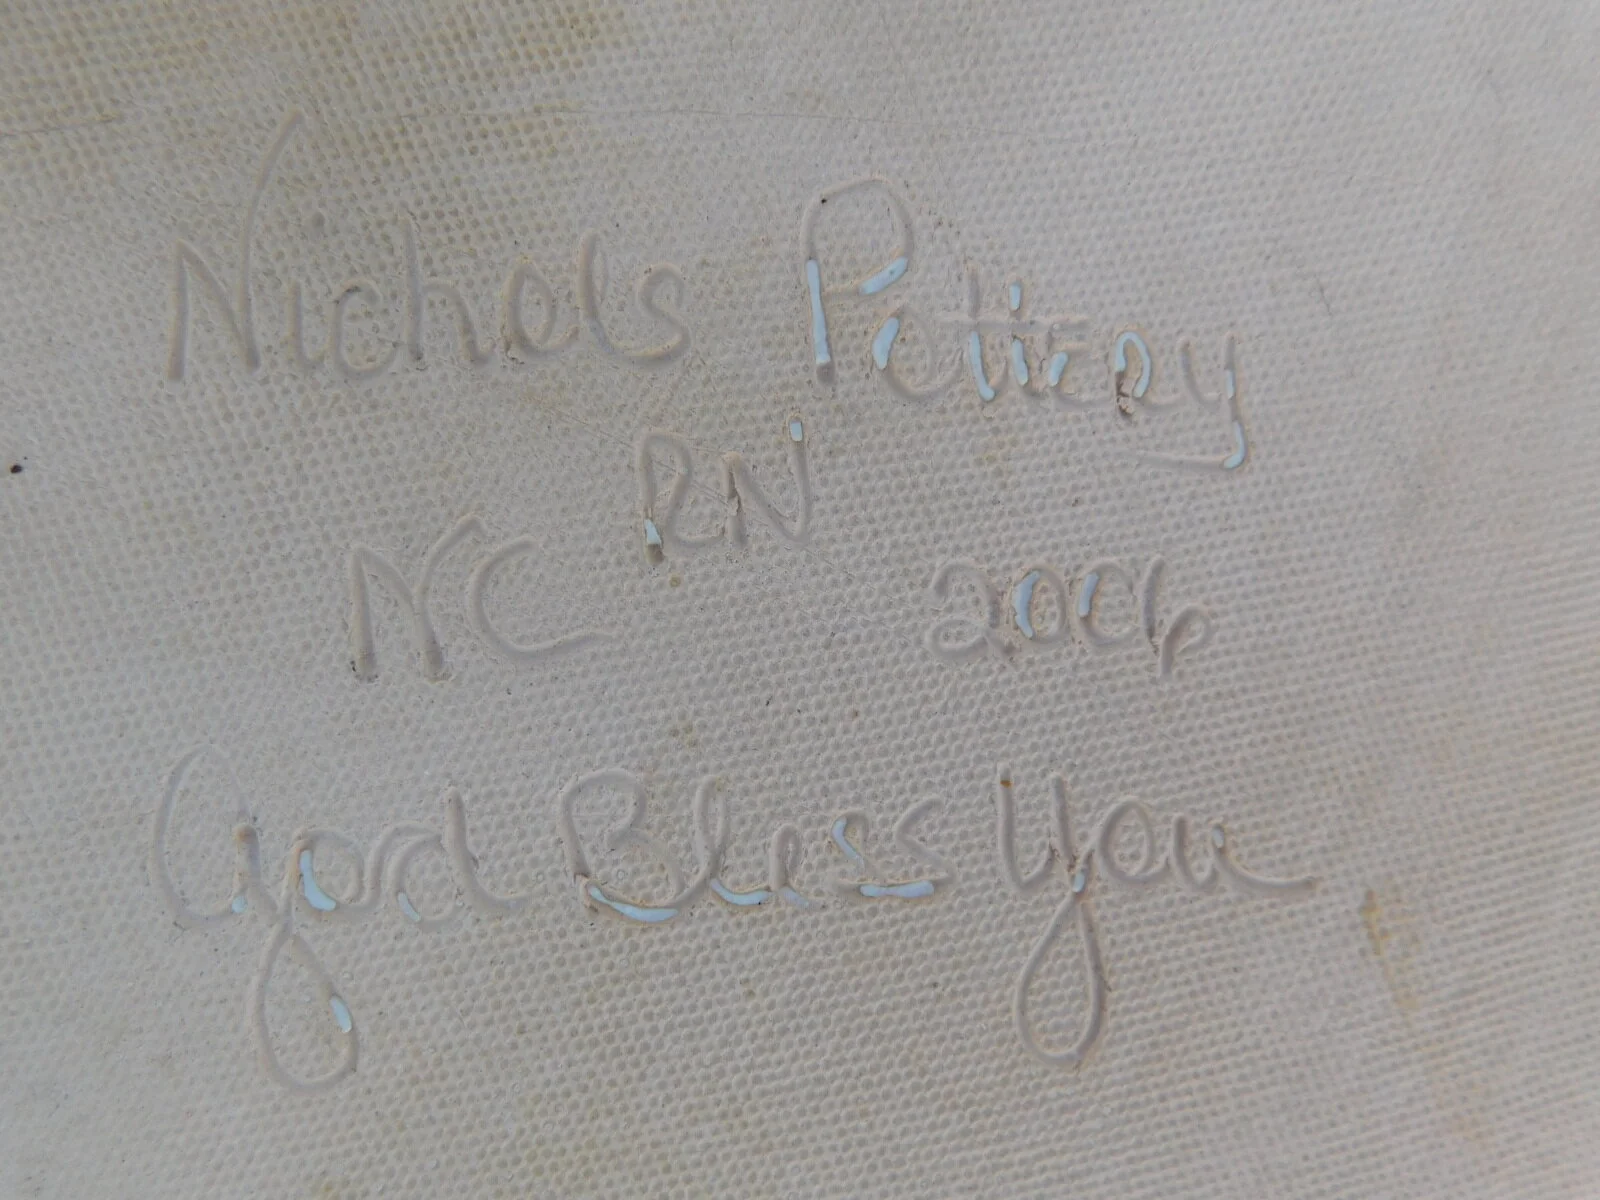 Nichols Pottery
RN
NC 2006
God Bless You